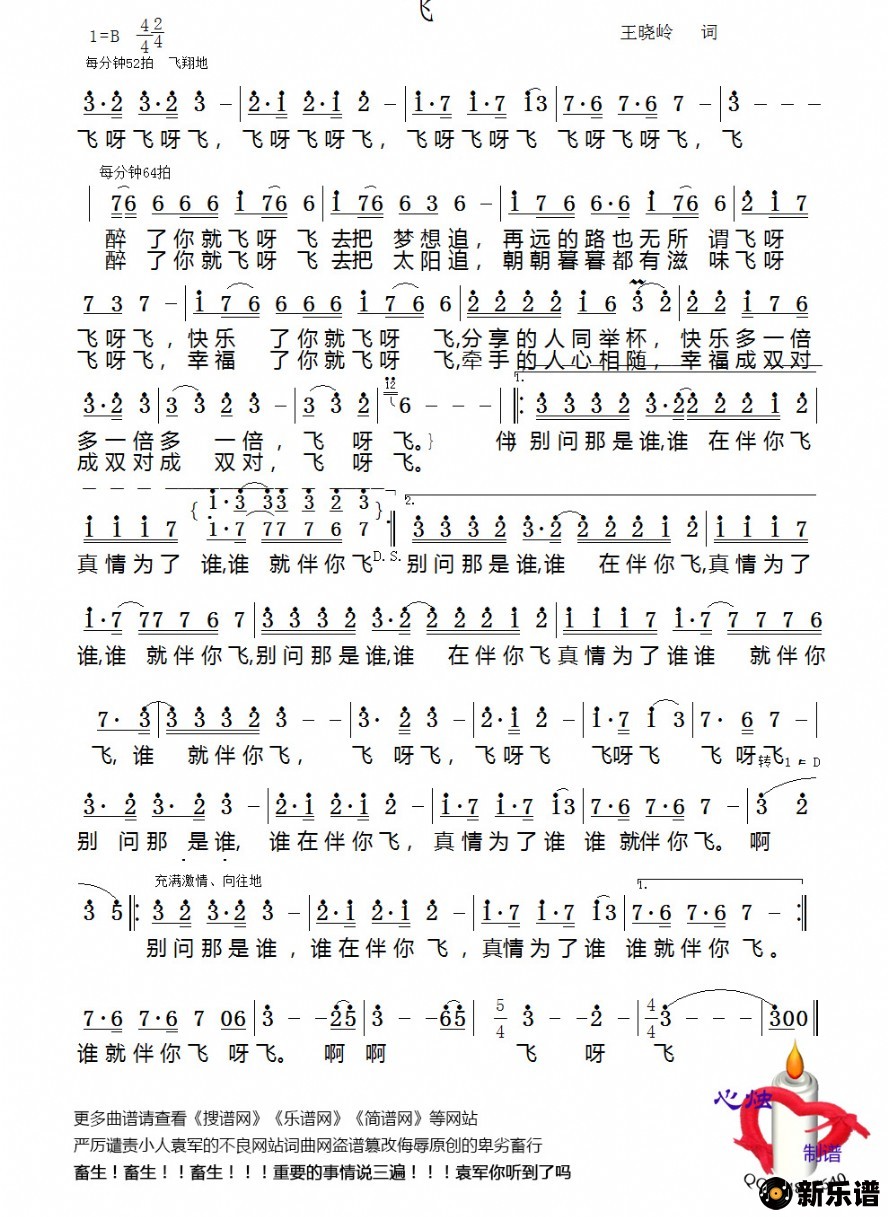 飞
1=B 4/4 2/4
王晓岭 词
每分钟52拍 飞翔地
3·2 3·2 3 - | 2·1 2·1 2 - | 1·7 1·7 13 | 7·6 7·6 7 - | 3 - - -
飞呀飞呀飞，飞呀飞呀飞，飞呀飞呀飞 飞呀飞呀飞，飞
每分钟64拍
| 76 6 6 6 1 76 6 | 1 76 6 3 6 - | 1 7 6 6·6 1 76 6 | 2 1 7
醉 了你就飞呀 飞 去把 梦想追，再远的路也无所 谓飞呀
醉 了你就飞呀 飞 去把 太阳追，朝朝暮暮都有滋 味飞呀
7 3 7 - | 1 7 6 6 6 6 1 7 6 6 | 2 2 2 2 1 6 3 2 | 2 2 1 7 6
飞呀飞，快乐 了你就飞呀 飞,分享的人同举杯，快乐多一倍
飞呀飞，幸福 了你就飞呀 飞,牵手的人心相随，幸福成双对
1.
3·2 3 | 3 3 2 3 - | 3 3 2 | 12 6 - - - |: 3 3 3 2 3·2 2 2 2 1 2 |
多一倍多 一倍，飞 呀飞。} 伴 别问那是谁,谁 在伴你飞
成双对成 双对，飞 呀飞。
{ 1·3 33 3 2 3 }
2.
1 1 1 7 1·7 77 7 6 7 :| 3 3 3 2 3·2 2 2 2 1 2 | 1 1 1 7
D.S.
真情为了 谁,谁 就伴你飞 别问那是谁,谁 在伴你飞,真情为了
1·7 77 7 6 7 | 3 3 3 2 3·2 2 2 2 1 2 | 1 1 1 7 1·7 7 7 7 6
谁,谁 就伴你飞,别问那是谁,谁 在伴你飞真情为了谁谁 就伴你
7· 3 | 3 3 3 2 3 - - | 3· 2 3 - | 2·1 2 - | 1·7 1 3 | 7· 6 7 - |
飞，谁 就伴你飞， 飞 呀飞，飞呀飞 飞呀飞 飞 呀飞
转1=D
3· 2 3· 2 3 - | 2·1 2·1 2 - | 1·7 1·7 13 | 7·6 7·6 7 - | 3 2
别 问那 是谁, 谁在伴你飞，真情为了谁 谁就伴你飞。啊
充满激情、向往地
1.
3 5 |: 3 2 3·2 3 - | 2·1 2·1 2 - | 1·7 1·7 13 | 7·6 7·6 7 - :|
别问那是谁，谁在伴你 飞，真情为了谁 谁就伴你 飞。
7·6 7·6 7 06 | 3 - - 25 | 3 - - 65 | 5/4 3 - - 2 - | 4/4 3 - - - | 300 ||
谁就伴你飞 呀飞。 啊 啊 飞 呀 飞
心烛
制谱
更多曲谱请查看《搜谱网》《乐谱网》《简谱网》等网站
严厉谴责小人袁军的不良网站词曲网盗谱篡改侮辱原创的卑劣畜行
畜生！畜生！！畜生！！！重要的事情说三遍！！！袁军你听到了吗
新乐谱